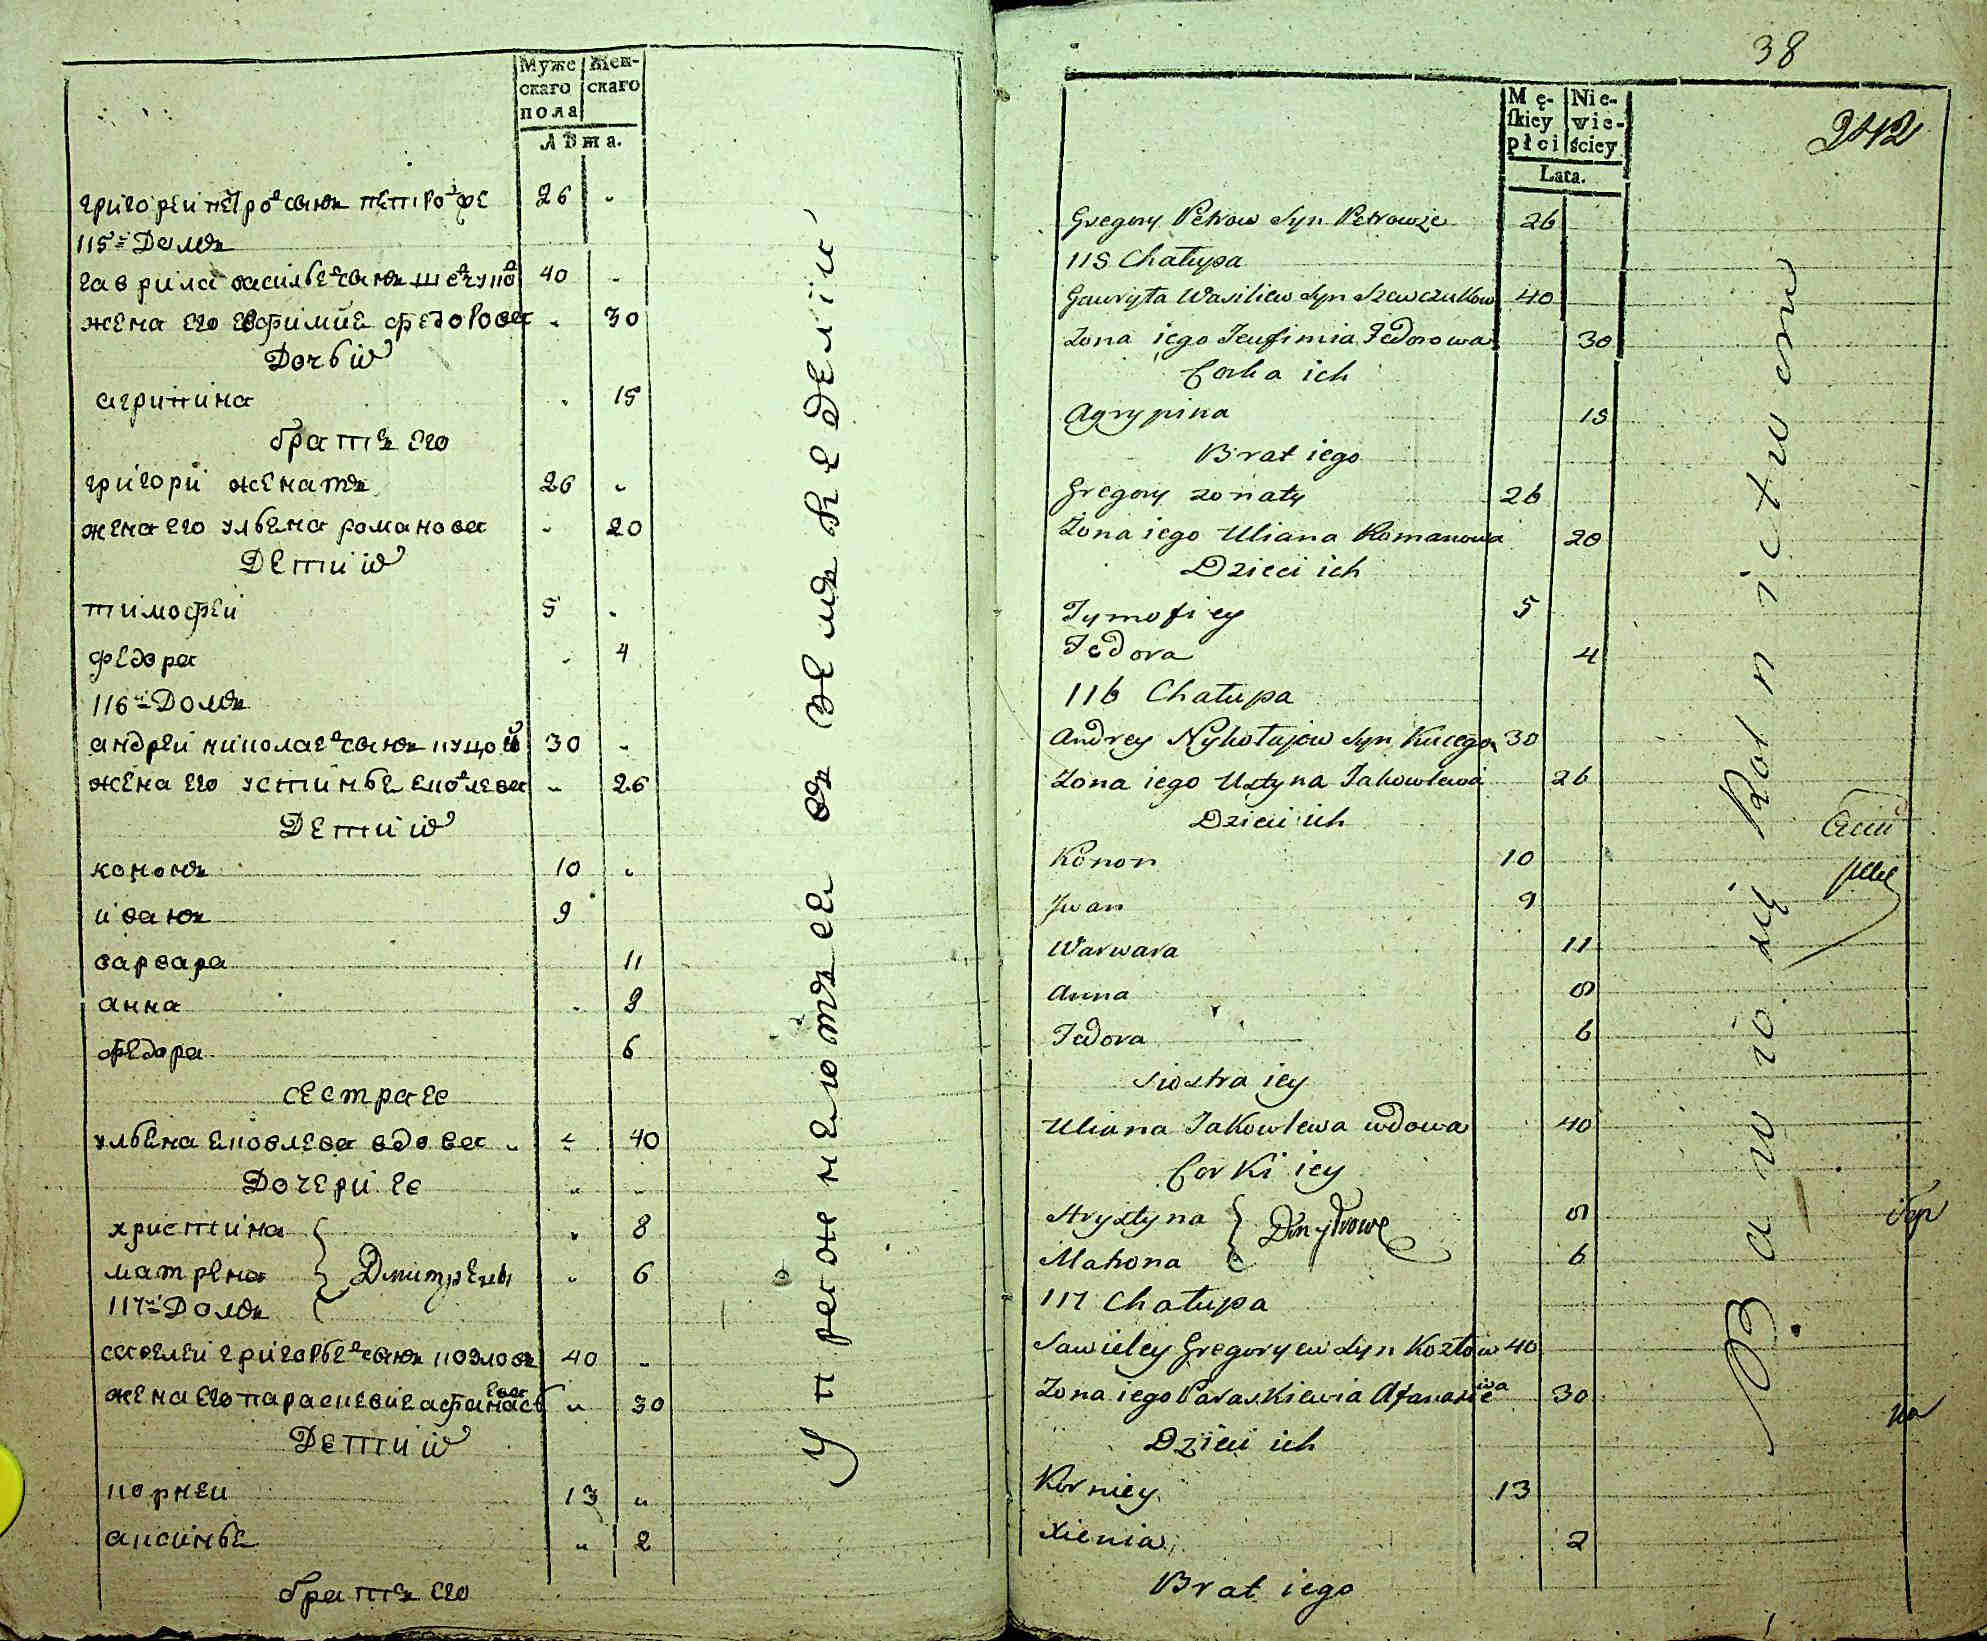 Муже
скаго
пола
Жен-
скаго
Лѣта.
григореи петро сынъ петро же 26 "
115й Домъ
гаврила василье сынъ шевчуко 40 "
жена его евфимие федорова " 30
Дочь их
агрипина " 15
братъ его
григори женатъ 26 "
жена его ульена романова " 20
Дети их
тимофеи 5 "
федора " 4
116й Домъ
андреи николае сынъ куцои 30 "
жена его устинье ековлева " 26
Дети их
кононъ 10 "
иванъ 9
варвара 11
анна " 9
федора 6
сестра ее
ульена ековлева вдова " 40
Дочери ее " "
христина " 8
матрена Дмитрены " 6
117й Домъ
савелеи григорье сынъ козловъ 40 "
жена его параскевие афанасьева " 30
Дети их
корнеи 13 "
аксинье " 2
братъ его
Упражнеютъся въ земледелии
38
242
Mę-
skiey
płci
Nie-
wie-
ściey
Lata.
Gregory Petrow Syn Petrowże 26
115 Chałupa
Gawryła Wasiliew Syn Szewczukow 40
Zona iego Jeufimia Fedorowa 30
Corka ich
Agrypina 15
Brat iego
Gregory zonaty 26
Zona iego Uliana Romanowa 20
Dzieci ich
Tymofiey 5
Fedora 4
116 Chałupa
Andrey Nykołajew Syn Kucego 30
Zona iego Ustyna Jakowlewa 26
Dzieci ich
Konon 10
Iwan 9
Warwara 11
Anna 9
Fedora 6
Siostra iey
Uliana Jakowlewa wdowa 40
Corki iey
Hrystyna 8
Matrona Dmytrowe 6
117 Chałupa
Sawieley Gregoryew Syn Kozłow 40
Zona iego Paraskiewia Afanasiewa 30
Dzieci ich
Korniey 13
Xienia 2
Brat iego
Bawią się Rolnictwem